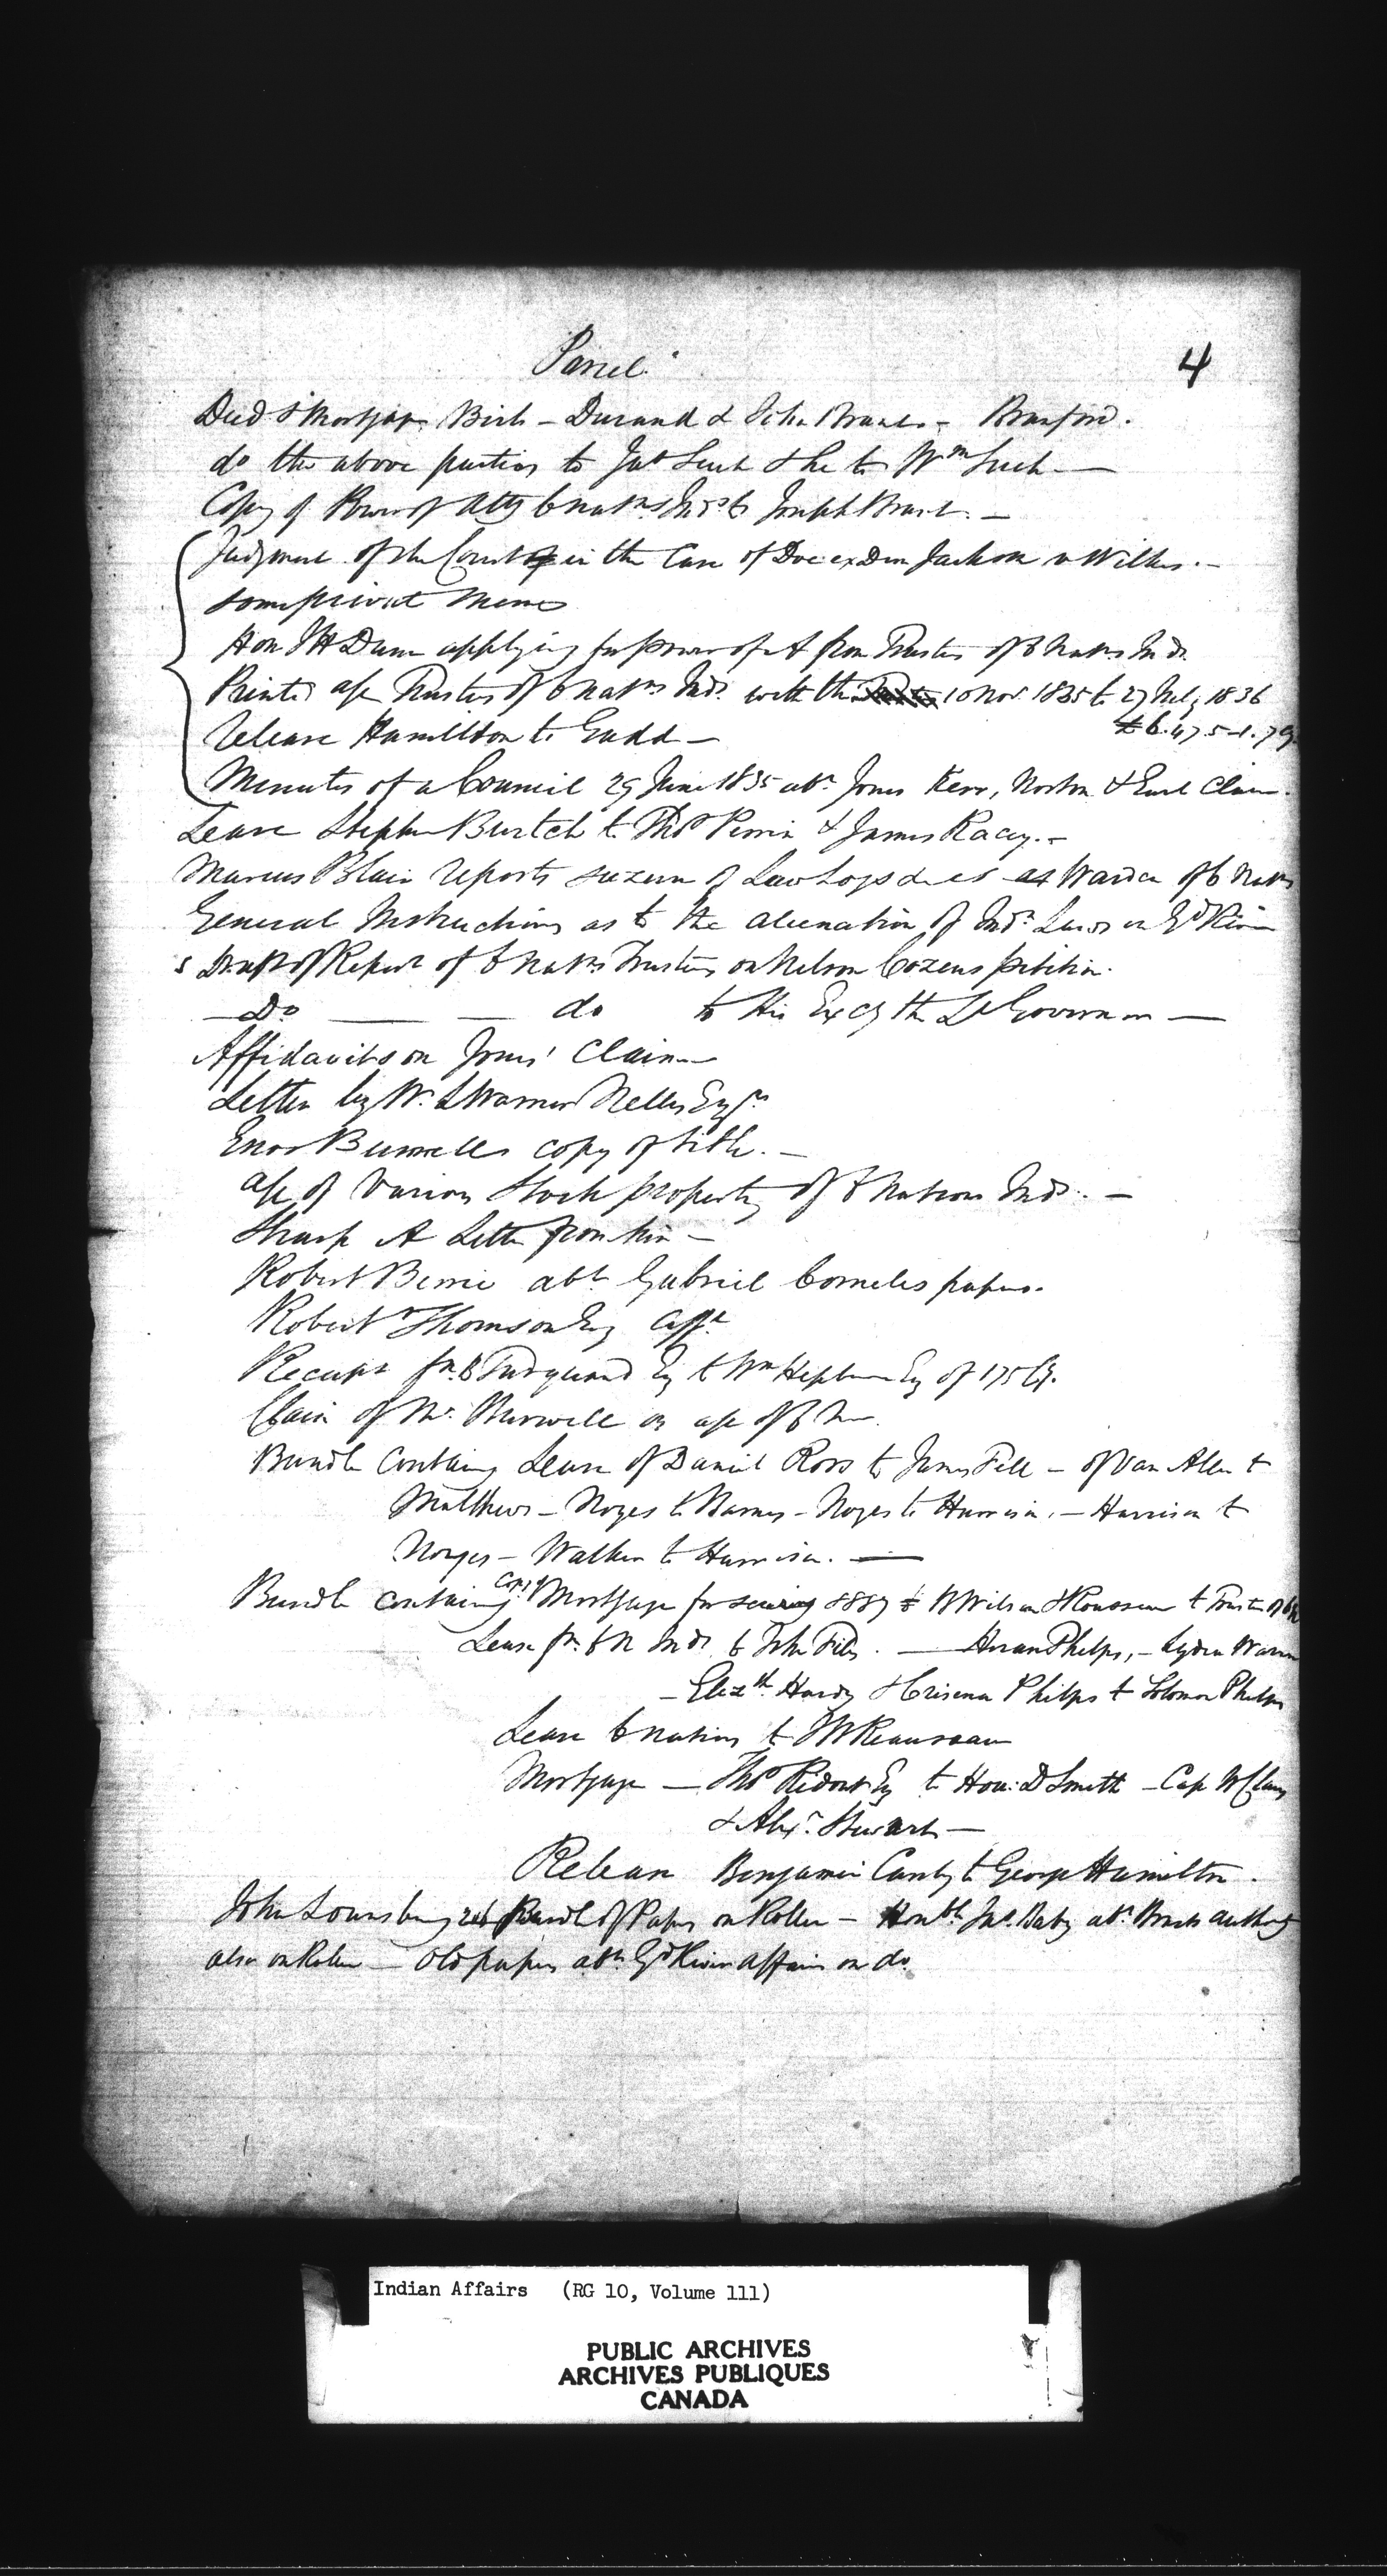 Parcel
4
Deed & Mortgage Birch - Durand & John Brant - Branford.
do the above parties to Jas Such & he to Wm Such —
Copy of Power of Atty 6 Natns Inds to Joseph Brant. —
Judgment of the Court in the Case of Doe ex Dem Jackson v Wilkes. -
some private Memos
Hon J H Dunn applying for power of A from Trustees of 6 Natns Inds
Printed a/c Trustees of 6 Natns Inds. with the 10 Nov. 1835 to 27 July 1836
Release Hamilton to Gadd —
Minutes of a Council 29 June 1835 abt Jones Kerr, Norton & Earl Claim.
Lease Stephen Burtch to Thos Perrin & James Racey. -
Marcus Blair reports seizure of Saw Logs as Warden of 6 Natns
General Instructions as to the alienation of Indn Lands on Gd River
Draft of Report of 6 Natns Trustees on Nelson Cozens petition.
— Do — — do to His Excy the Lt Governor —
Affidavits on Jones' Claim —
Letter by W. & Warner Nelles Esqrs
Enos Bunnells copy of title. —
a/c of Various Stock property of 6 Nations Inds. —
Sharp A Letter from him —
Robert Berrie abt Gabriel Cornelis papers.
Robert Thomson Esq afft.
Receipt fm B Turquand Esq to Wm Hepburn Esq of 175 Cy.
Claim of Mr. Burwell on a/c of 6 Ns.
Bundle Containing Lease of Daniel Ross to James Fell - of Van Allen to
Matthews - Noyes to Barnes - Noyes to Harrison. - Harrison to
Noyes - Walker to Harrison. —
Bundle containing Copy Mortgage for securing 8887 W Wilson & Rousseau to Trustees of 6 N
Lease fm 6 N Inds to John Files. — Hiram Phelps, - Lydia Warner
- Elizth Hardy & Phelps to Solomon Phelps
Lease 6 Nations to J W Reausseau
Mortgage — Thos Ridout Esq to Hon. D Smith - Cap W Claus
& Alexr. Stewart —
Release Benjamin Canby to George Hamilton.
John Lounsbury Bundle of Papers on Roller - Honble Jas. Baby abt. Brants authority
also on Roller — Old papers abt Gd River affairs on do.
Indian Affairs (RG 10, Volume 111)
PUBLIC ARCHIVES
ARCHIVES PUBLIQUES
CANADA